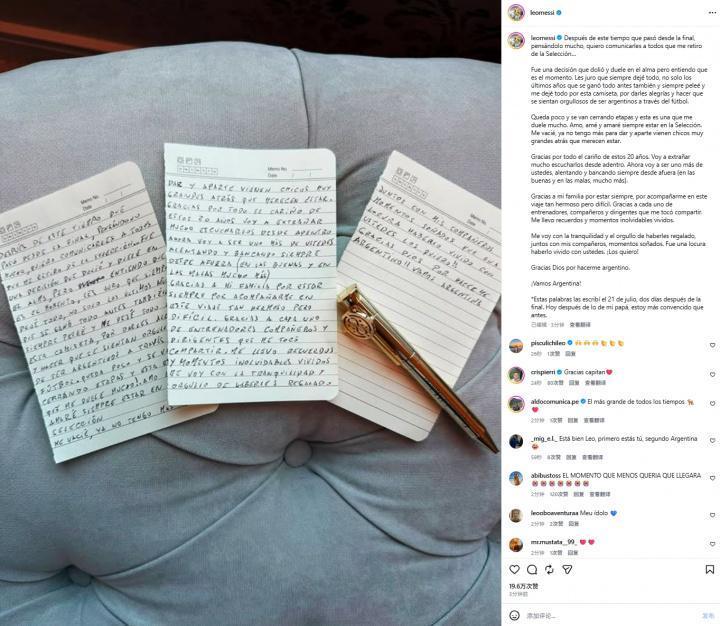 Memo No.
Date / /
DESPUÉS DE ESTE TIEMPO QUE
PASÓ DESDE LA FINAL, PENSÁNDOLO
MUCHO, QUIERO COMUNICARLES A TODOS
QUE ME RETIRO DE LA SELECCIÓN... FUE
UNA DECISIÓN QUE DOLIÓ Y DUELE EN
EL ALMA, PERO ENTIENDO QUE
ES EL MOMENTO. LES JURO QUE SIEMPRE
DEJÉ TODO, NO SOLO LOS ÚLTIMOS AÑOS
QUE SE GANÓ TODO ANTES TAMBIÉN
SIEMPRE PELEÉ Y ME DEJÉ TODO POR
ESTA CAMISETA, POR DARLES ALEGRÍAS
Y HACER QUE SE SIENTAN ORGULLOSOS
DE SER ARGENTINOS A TRAVÉS DEL
FÚTBOL. QUEDA POCO, Y SE VAN
CERRANDO ETAPAS Y ESTA ES UNA
QUE ME DUELE MUCHO. AMO, AMÉ Y
AMARÉ SIEMPRE ESTAR EN LA
SELECCIÓN.
ME VACIÉ, YA NO TENGO MÁS
Memo No.
Date / /
DAR Y APARTE VIENEN CHICOS MUY
GRANDES ATRÁS QUE MERECEN ESTAR.
GRACIAS POR TODO EL CARIÑO DE
ESTOS 20 AÑOS. VOY A EXTRAÑAR
MUCHO ESCUCHARLOS DESDE ADENTRO
AHORA VOY A SER UNO MÁS DE USTEDES
ALENTANDO Y BANCANDO SIEMPRE
DESDE AFUERA (EN LAS BUENAS Y EN
LAS MALAS MUCHO MÁS)
GRACIAS A MI FAMILIA POR ESTAR
SIEMPRE POR ACOMPAÑARME EN
ESTE VIAJE TAN HERMOSO PERO
DIFÍCIL. GRACIAS A CADA UNO
DE ENTRENADORES COMPAÑEROS Y
DIRIGENTES QUE ME TOCÓ
COMPARTIR. ME LLEVO RECUERDOS
Y MOMENTOS INOLVIDABLES VIVIDOS
ME VOY CON LA TRANQUILIDAD Y
ORGULLO DE HABERLES REGALADO
Memo No.
Date / /
JUNTOS CON MIS COMPAÑEROS
MOMENTOS SOÑADOS. FUE UNA
LOCURA HABERLO VIVIDO CON
USTEDES LOS QUIERO!!
GRACIAS DIOS POR HACERME
ARGENTINO!! VAMOS ARGENTINA!
leomessi
leomessi Después de este tiempo que pasó desde la final,
pensándolo mucho, quiero comunicarles a todos que me retiro
de la Selección...
Fue una decisión que dolió y duele en el alma pero entiendo que
es el momento. Les juro que siempre dejé todo, no solo los
últimos años que se ganó todo antes también y siempre peleé y
me dejé todo por esta camiseta, por darles alegrías y hacer que
se sientan orgullosos de ser argentinos a través del fútbol.
Queda poco y se van cerrando etapas y esta es una que me
duele mucho. Amo, amé y amaré siempre estar en la Selección.
Me vacié, ya no tengo más para dar y aparte vienen chicos muy
grandes atrás que merecen estar.
Gracias por todo el cariño de estos 20 años. Voy a extrañar
mucho escucharlos desde adentro. Ahora voy a ser uno más de
ustedes, alentando y bancando siempre desde afuera (en las
buenas y en las malas, mucho más).
Gracias a mi familia por estar siempre, por acompañarme en este
viaje tan hermoso pero difícil. Gracias a cada uno de
entrenadores, compañeros y dirigentes que me tocó compartir.
Me llevo recuerdos y momentos inolvidables vividos.
Me voy con la tranquilidad y el orgullo de haberles regalado,
juntos con mis compañeros, momentos soñados. Fue una locura
haberlo vivido con ustedes. ¡Los quiero!
Gracias Dios por hacerme argentino.
¡Vamos Argentina!
*Estas palabras las escribí el 21 de julio, dos días después de la
final. Hoy después de lo de mi papá, estoy más convencido que
antes.
已编辑 3分钟 查看翻译
pisculichileo
26秒 1次赞 回复
crispierri Gracias capitan
24秒 80次赞 回复 查看翻译
aldocomunica.pe El más grande de todos los tiempos
2分钟 1次赞 回复 查看翻译
_mig_e.l_ Está bien Leo, primero estás tú, segundo Argentina
59秒 8次赞 回复 查看翻译
abibustoss EL MOMENTO QUE MENOS QUERIA QUE LLEGARA
2分钟 120次赞 回复 查看翻译
leooboaventuraa Meu ídolo
2分钟 2次赞 回复
mr.mustata_99_
2分钟 1次赞 回复
19.6万次赞
3分钟前
添加评论...
发布